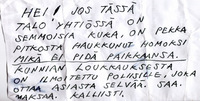 HEI! JOS TÄSSÄ
TALO YHTIÖSSÄ ON
SEMMOISIA KUKA, ON PEKKA
PITKOSTA HAUKKUNUT HOMOKSI
MIKÄ EI PIDÄ PAIKKANSA.
KUNNIAN LOUKKAUKSESTA
ON ILMOITETTU POLIISILLE, JOKA
OTTAA ASIASTA SELVÄÄ. SAA.
MAKSAA. KALLIISTI.